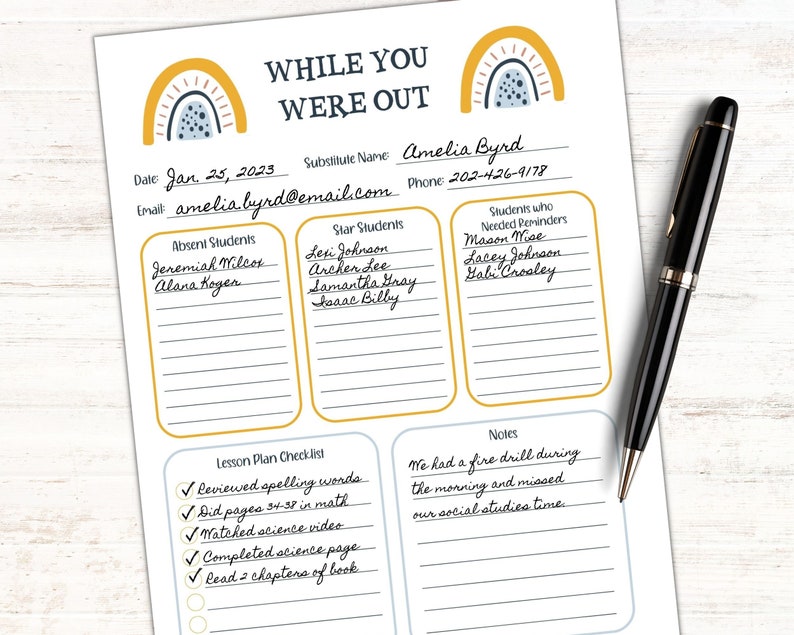 WHILE YOU
WERE OUT
Date: Jan. 25, 2023 Substitute Name: Amelia Byrd
Email: amelia.byrd@email.com Phone: 202-426-9178
Absent Students
Jeremiah Wilcox
Alana Koger
Star Students
Lexi Johnson
Archer Lee
Samantha Gray
Isaac Bilby
Students who
Needed Reminders
Mason Wise
Lacey Johnson
Gabi Crosley
Lesson Plan Checklist
Reviewed spelling words
Did pages 34-38 in math
Watched science video
Completed science page
Read 2 chapters of book
Notes
We had a fire drill during
the morning and missed
our social studies time.